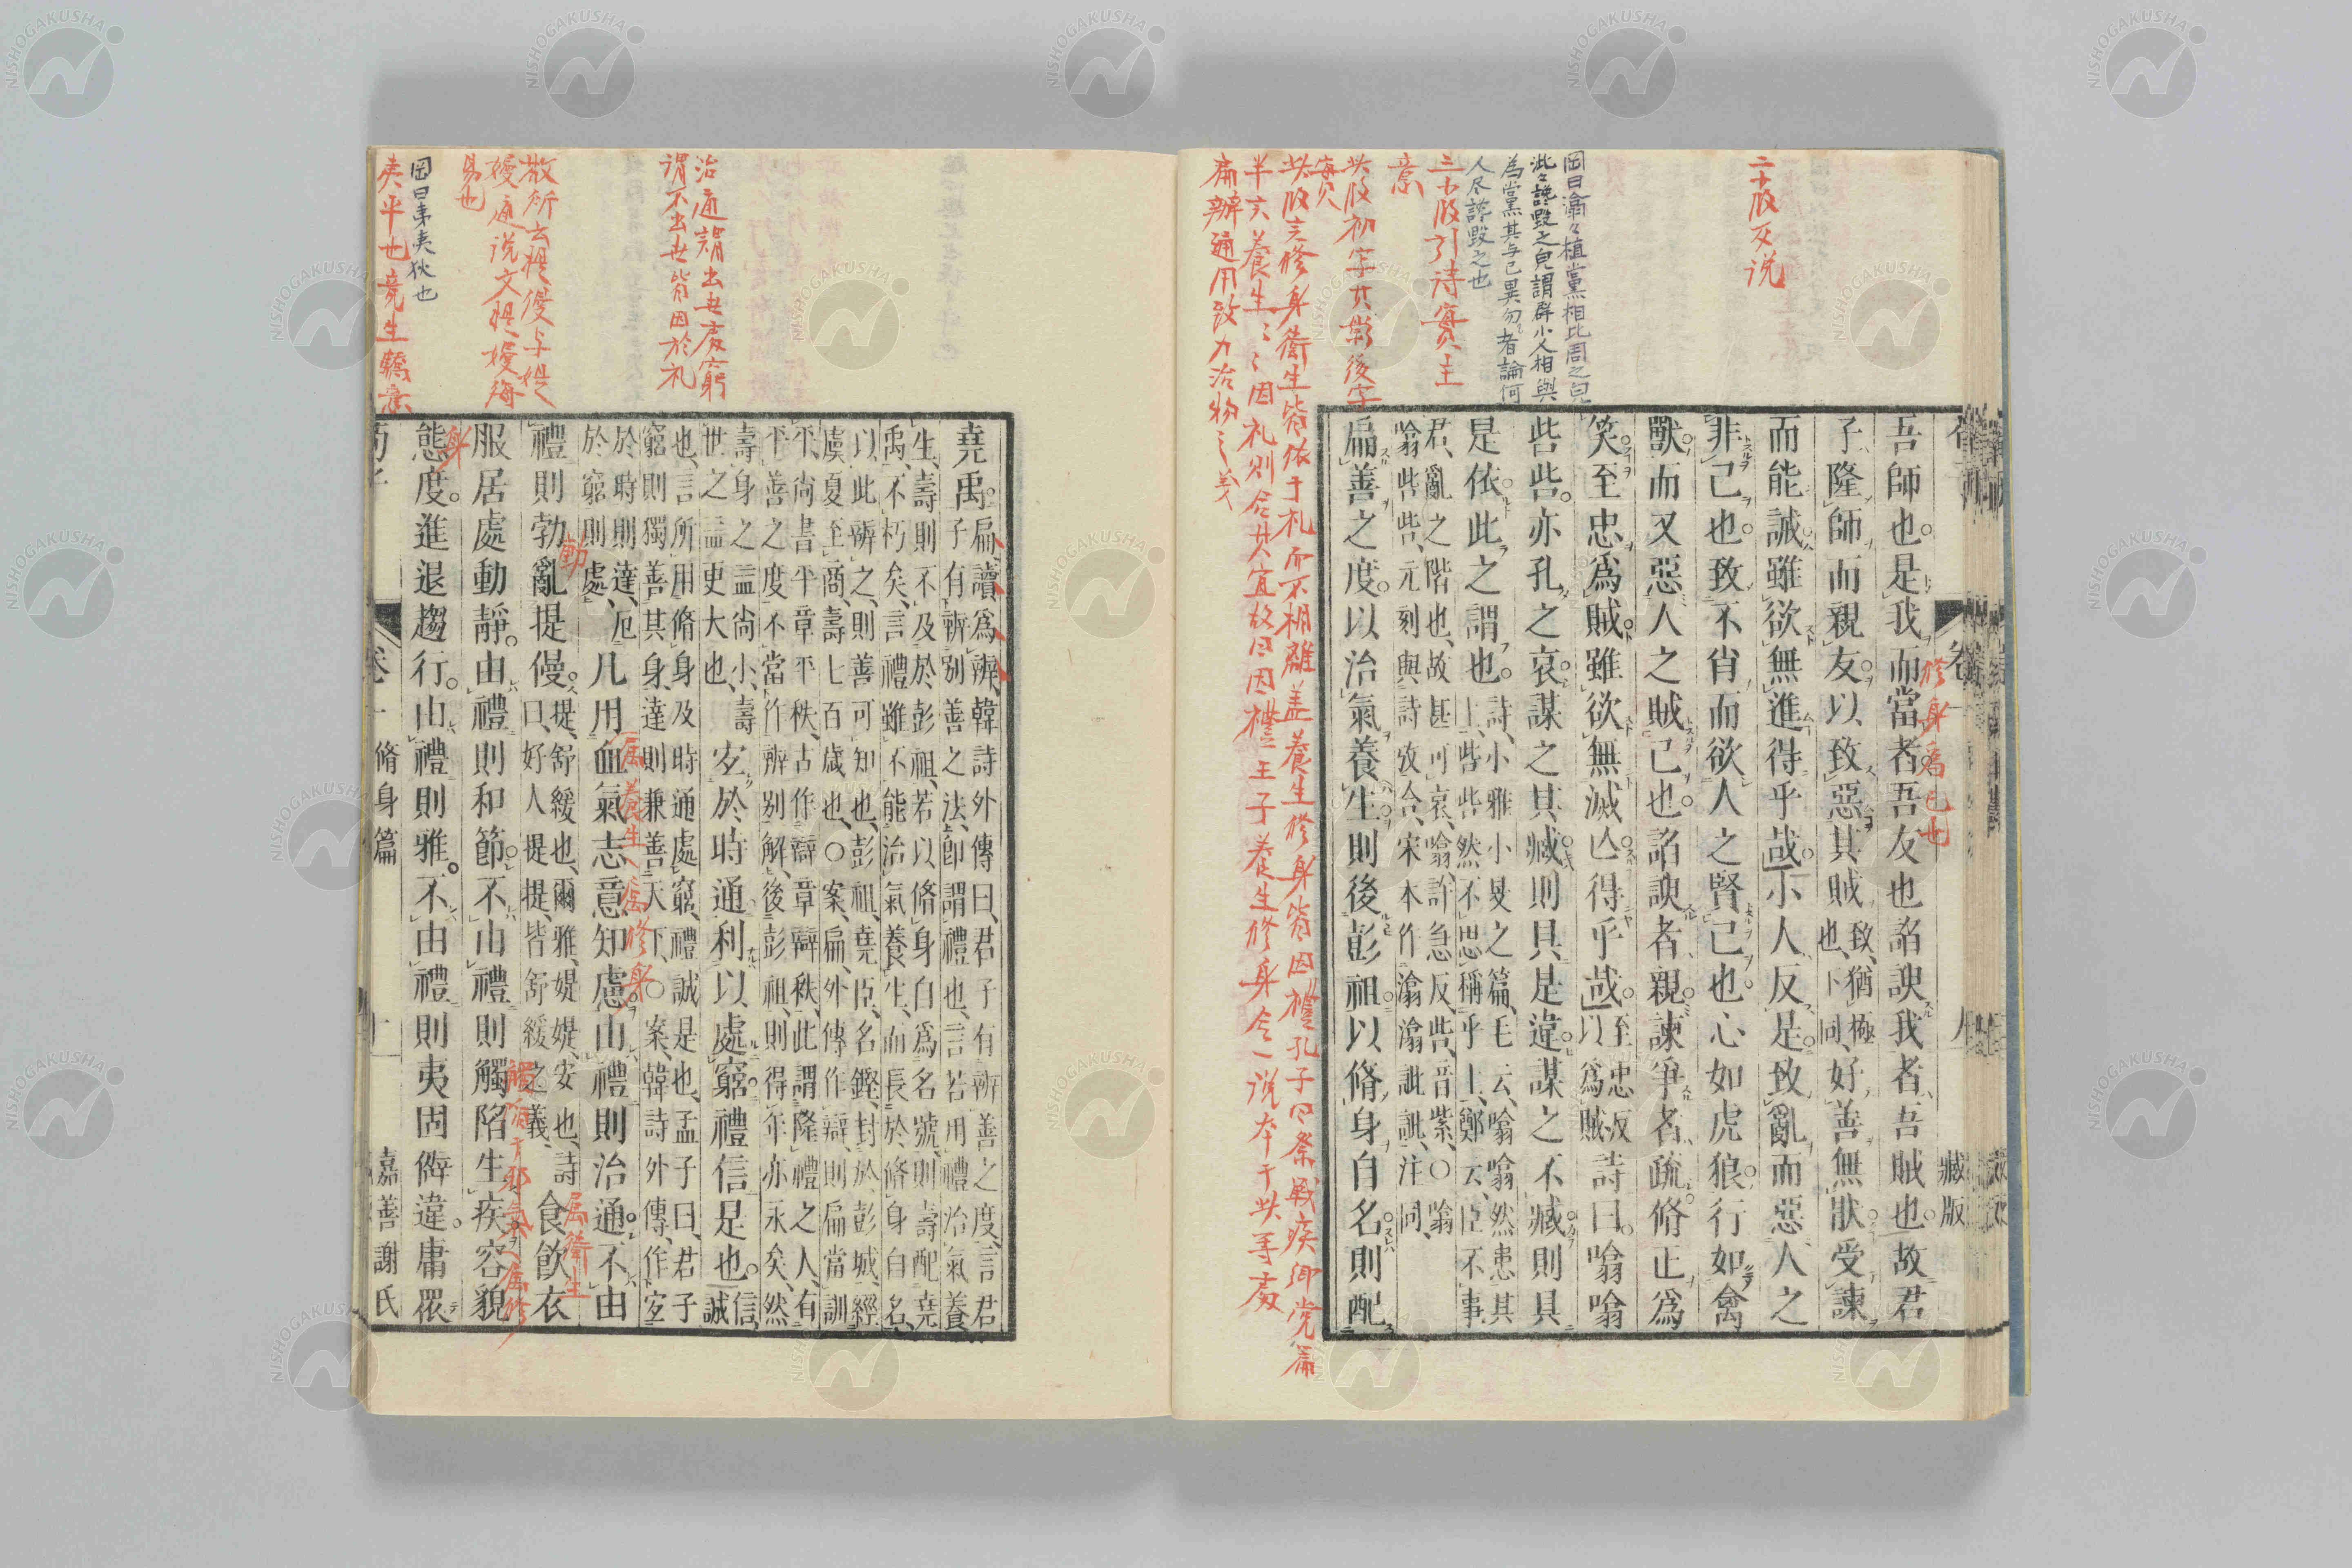 二小段反説
岡曰滃々植黨相比周之皃
訿々謗毀之皃謂群小人相與
為黨其与己異勿者論何
人尽謗毀之也
三小段引詩實主
意
吾師也是我而當者吾友也諂諛我者吾賊也故君
子隆師而親友以致惡其賊致猶極也下同好善無猒受諫
而能誡雖欲無進得乎哉小人反是致亂而惡人之
非己也致不肖而欲人之賢己也心如虎狼行如禽
獸而又惡人之賊己也諂諛者親諫爭者疏脩正爲
笑至忠爲賊雖欲無滅亾得乎哉至忠反以爲賊詩曰噏噏
呰呰亦孔之哀謀之其臧則具是違謀之不臧則具
是依此之謂也詩小雅小旻之篇毛云噏噏然患其上呰呰然不思稱乎上鄭云臣不事
君亂之階也故甚可哀噏許急反呰音紫○噏噏呰呰元刻與詩攷合宋本作滃滃訿訿注同
扁善之度以治氣養生則後彭祖以脩身自名則配
修身為己也
臧版
此段言修身衛生皆依于礼而不相離盖養生修身皆因禮孔子曰祭戦疾郷党篇
半六養生ミ因礼則合其宜故曰因禮王子養生修身合一説本于此等處
扁辨通用致力治物之義
堯禹扁讀爲辨韓詩外傳曰君子有辨善之度言君子有辨別善之法卽謂禮也言若用禮治氣養
生壽則不及於彭祖若以脩身自爲名號則壽配堯禹不朽矣言禮雖不能治氣養生而長於脩身自名
以此辨之則善可知也彭祖堯臣名鏗封於彭城經虞夏至商壽七百歲也○案扁外傳作辯則扁當訓
平尚書平章平秩古作辯章辯秩此謂隆禮之人有平善之度不當作辨別解後彭祖則得年亦永矣然
壽身之㿽尚小壽世之㿽更大也宐於時通利以處窮禮信是也信誠
也言所用脩身及時通處窮禮誠是也孟子曰君子窮則獨善其身達則兼善天下○案韓詩外傳作宐
於時則達厄於窮則處凡用血氣志意知慮由禮則治通不由
禮則勃亂提僈提舒緩也爾雅媞媞安也詩曰好人提提皆舒緩之義食飲衣
服居處動靜由禮則和節不由禮則觸陷生疾容貌
態度進退趨行由禮則雅不由禮則夷固僻違庸眾
脩身篇
嘉善謝氏
治通謂出世處窮
謂不出世皆因於礼
易也
岡曰夷夷狄也
夷平也竟生驕意
屬養生
屬修身
屬衛生